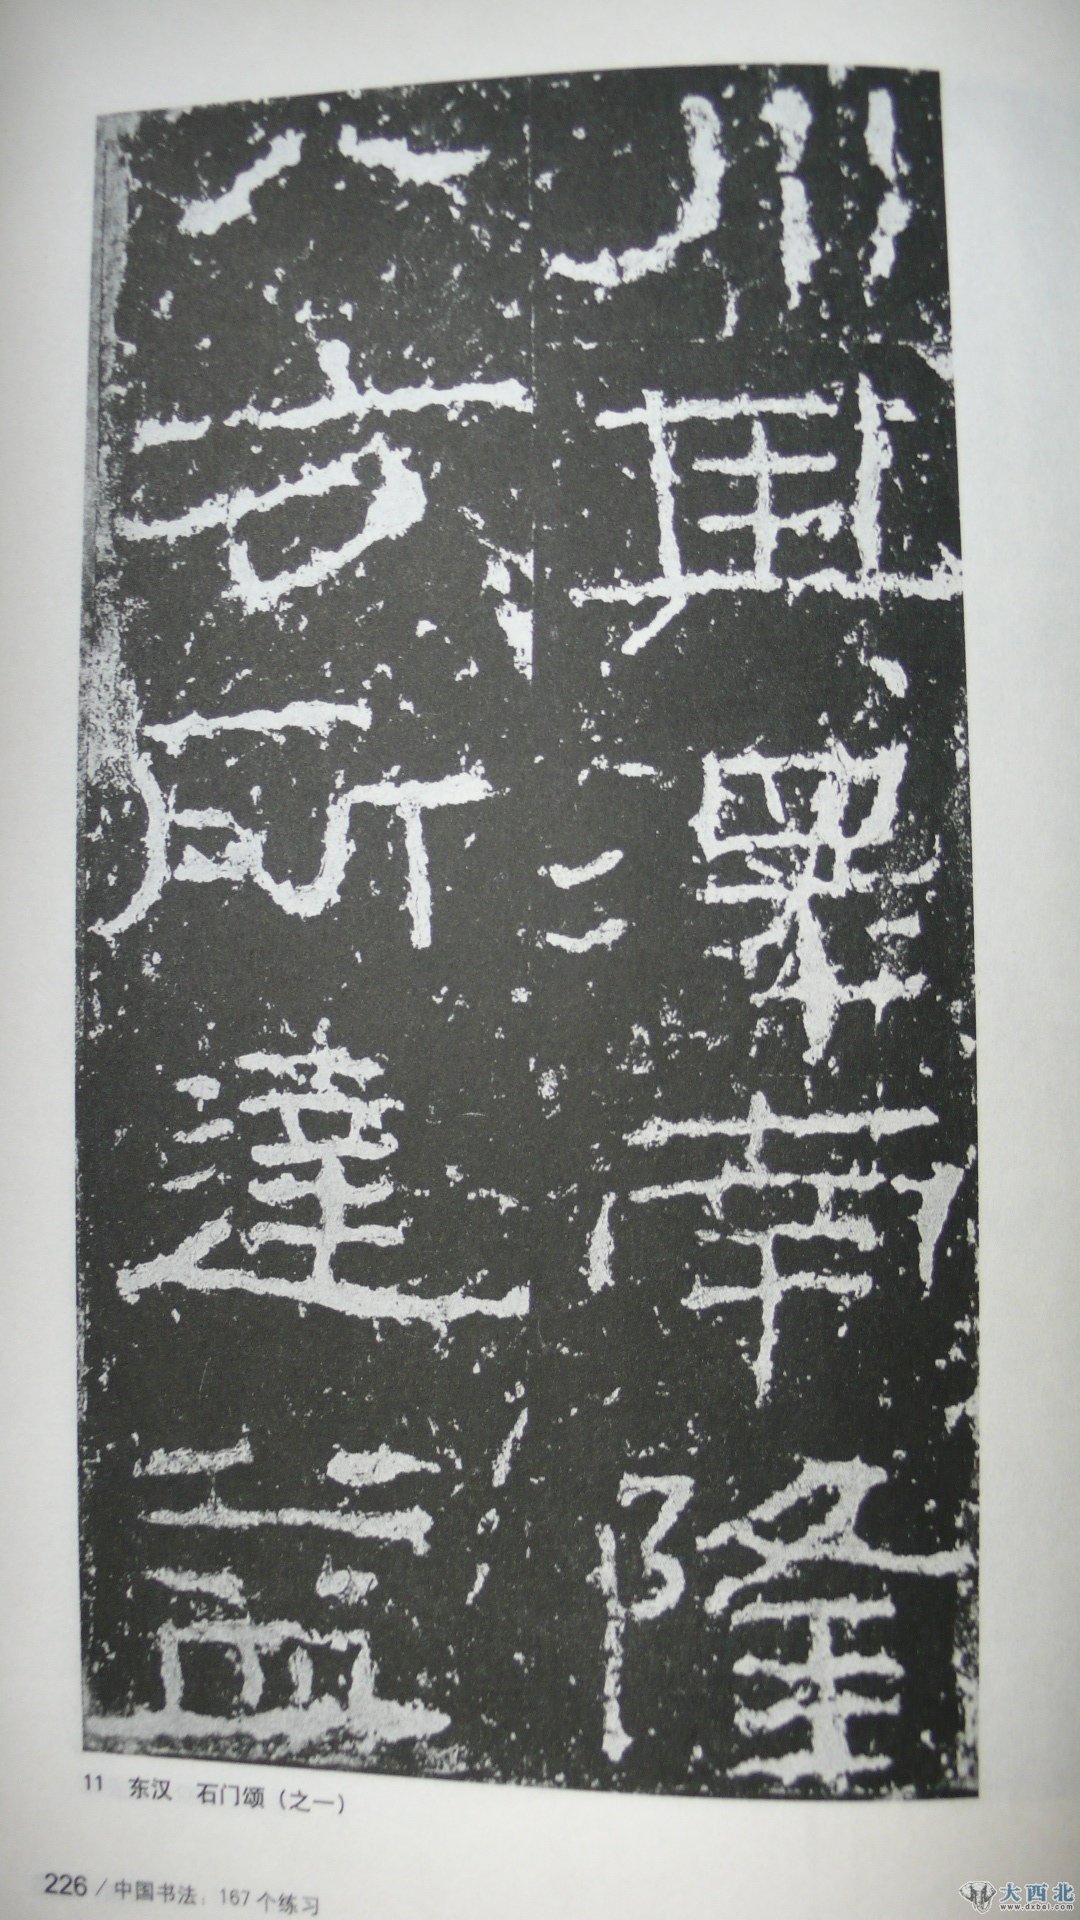 川其澤南隆
八方所達益
11 东汉 石门颂（之一）
226 / 中国书法：167个练习
大西北
www.dxbei.com